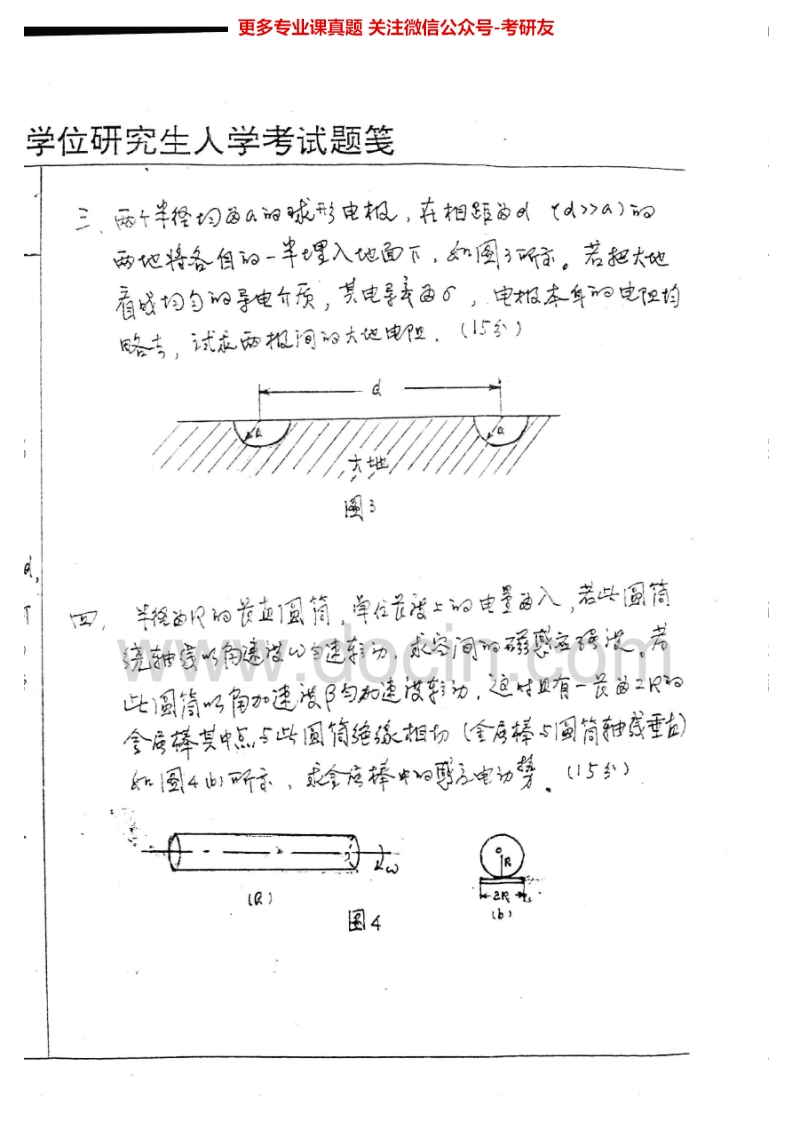 更多专业课真题 关注微信公众号-考研友
学位研究生入学考试题笺
三、两个半径均为a的球形电极，在相距为d（d>>a）的
两地将各自的一半埋入地面下，如图3所示。若把大地
看成均匀的导电介质，其电导率为σ，电极本身的电阻均
略去，试求两极间的大地电阻．（15分）
d
a
a
大地
图3
d,
四、半径为R的长直圆筒，单位长度上的电量为λ，若此圆筒
绕轴线以角速度ω匀速转动，求空间的磁感应强度。若
www.docin.com
此圆筒以角加速度β匀加速度转动，这时且有一长为2R的
金属棒其中点与此圆筒绝缘相切（金属棒与圆筒轴线垂直）
如图4(b)所示，求金属棒中的感应电动势。（15分）
ω
R
2R
(a)
(b)
图4